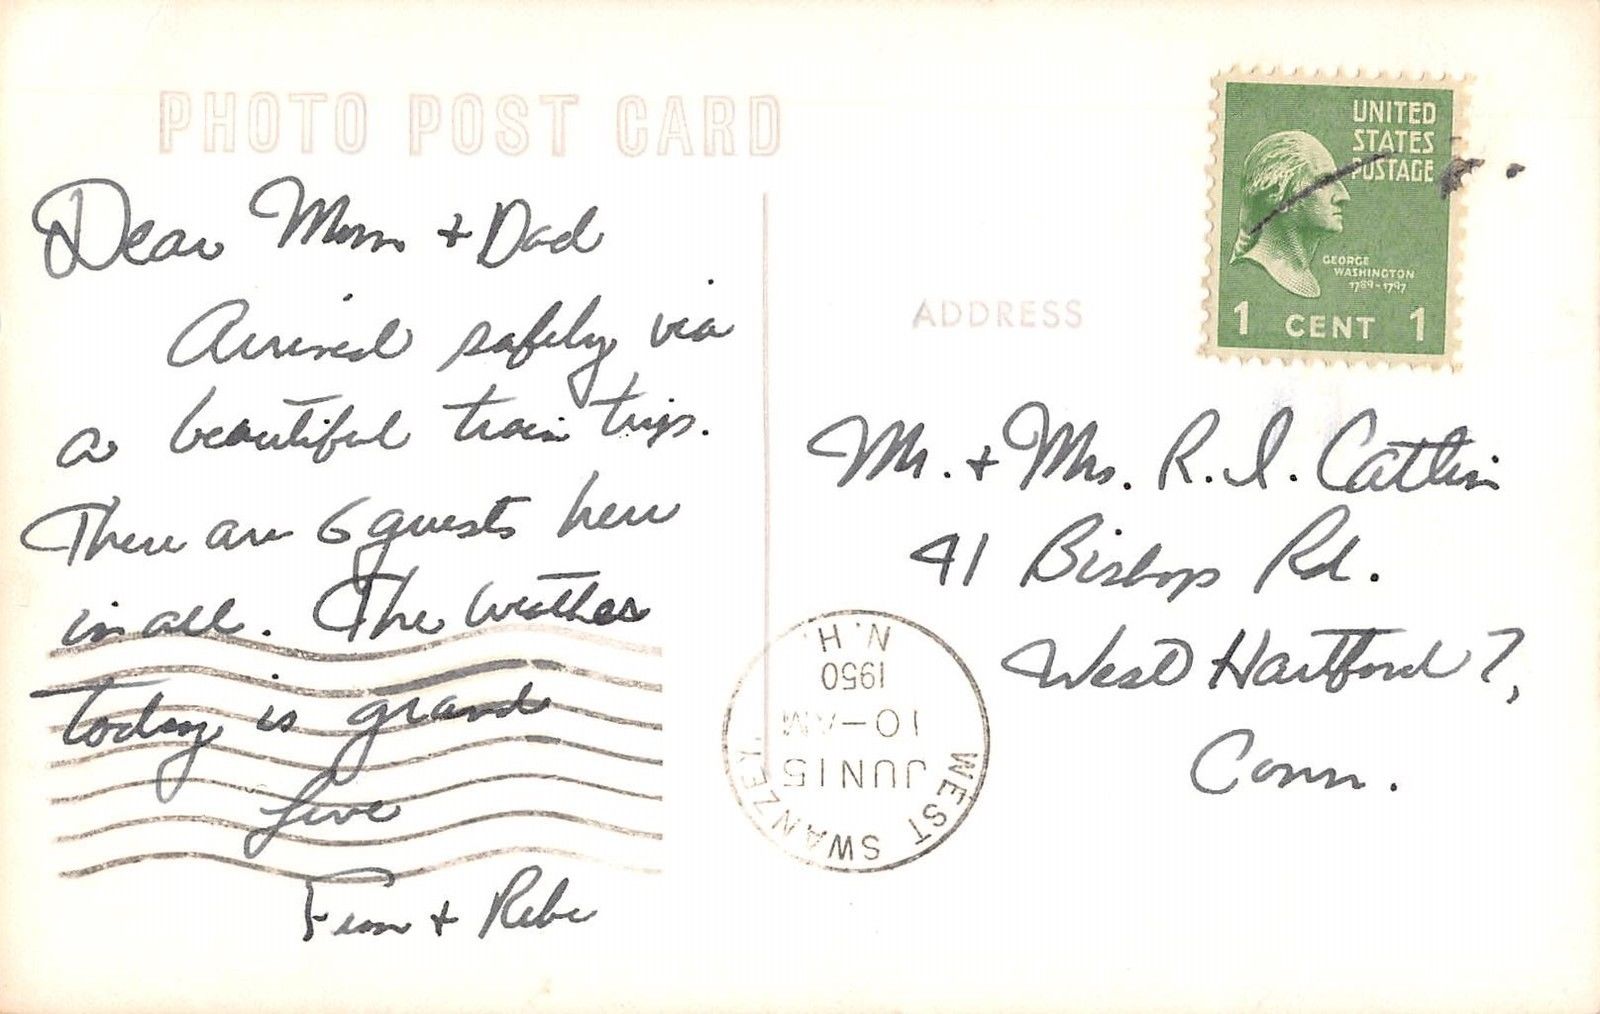 PHOTO POST CARD
Dear Mom + Dad
Arrived safely via
a beautiful train trip.
There are 6 guests here
in all. The weather
today is grand
Love
+ Rebe
UNITED
STATES
POSTAGE
GEORGE
WASHINGTON
1789-1797
1 CENT 1
ADDRESS
Mr. + Mrs. R. I. Catlin
41 Bishop Rd.
West Hartford 7,
Conn.
WEST SWANZEY,
JUN 15
10-AM
1950
N.H.